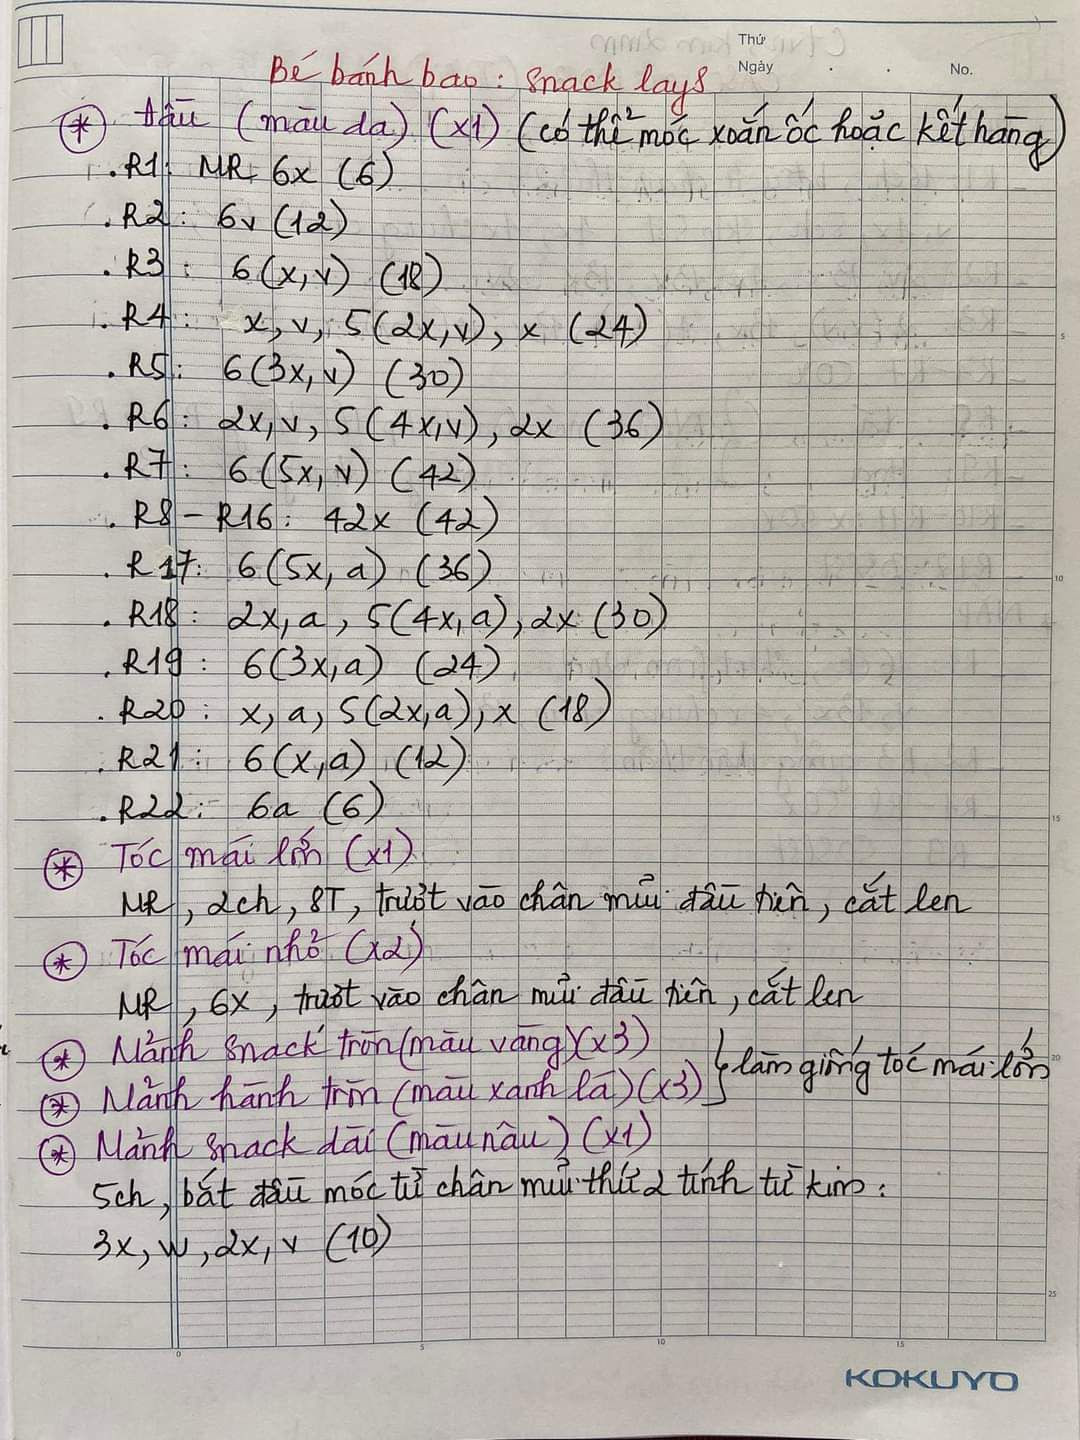 Thứ
Ngày . . No.
Bé bánh bao : Snack lays
* Đầu (màu da) (x1) (có thể móc xoắn ốc hoặc kết hàng)
. R1: MR 6x (6)
. R2: 6v (12)
. R3: 6(x,v) (18)
. R4: x, v, 5(2x,v), x (24)
. R5: 6(3x,v) (30)
. R6: 2x,v, 5(4x,v), 2x (36)
. R7: 6(5x,v) (42)
. R8 – R16: 42x (42)
. R17: 6(5x, a) (36)
. R18: 2x, a, 5(4x,a), 2x (30)
. R19: 6(3x,a) (24)
. R20: x, a, 5(2x,a), x (18)
. R21: 6(x,a) (12)
. R22: 6a (6)
* Tóc mái lớn (x1)
MR, 2ch, 8T, trượt vào chân mũi đầu tiên, cắt len
* Tóc mái nhỏ (x2)
MR, 6X, trượt vào chân mũi đầu tiên, cắt len
* Mảnh snack tròn (màu vàng) (x3)
* Mảnh hành tròn (màu xanh lá) (x3) } làm giống tóc mái lớn
* Mảnh snack dài (màu nâu) (x1)
5ch, bắt đầu móc từ chân mũi thứ 2 tính từ kim:
3x, w, 2x, v (10)
5
10
15
20
25
0 5 10 15
KOKUYO